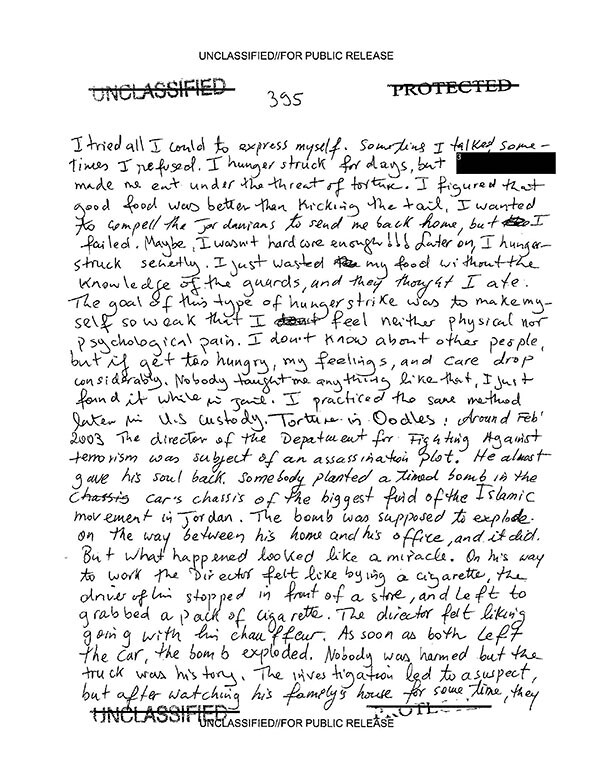 UNCLASSIFIED//FOR PUBLIC RELEASE
UNCLASSIFIED PROTECTED
395
I tried all I could to express myself. Sometims I talked, some-
times I refused. I hunger struck for days, but 3
made me eat under the threat of torture. I figured that
good food was better then kicking the tail, I wanted
to compell the Jordanians to send me back home, but I
failed. Maybe, I wasn't hard core enough!!! Later on, I hunger-
struck secretly. I just wasted my food without the
knowledge of the guards, and they thought I ate.
The goal of this type of hunger strike was to make my-
self so weak that I feel neither physical nor
psychological pain. I don't know about other people,
but if get too hungry, my feelings, and care drop
considerably. Nobody taught me anything like that, I just
found it while in jail. I practiced the same method
later in U.S custody. Torture in Oodles: Around Feb'
2003 The director of the Depatment for Fighting Against
terrorism was subject of an assassination plot. He almost
gave his soul back. Somebody planted a timed bomb in the
Chassis car's chassis of the biggest find of the Islamic
movement in Jordan. The bomb was supposed to explode
on the way between his home and his office, and it did.
But what happened looked like a miracle. On his way
to work the Director felt like bying a cigarette, the
driver of him stopped in front of a store, and left to
grabbed a pack of cigarette. The director felt liking
going with his chauffeur. As soon as both left
the car, the bomb exploded. Nobody was harmed but the
truck was history. The investigation led to a suspect,
but after watching his famely's house for some time, they
UNCLASSIFIED
UNCLASSIFIED//FOR PUBLIC RELEASE